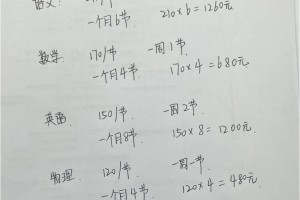 语文:
一个月6节 210×6=1260元
数学. 170/节 一周1节
一个月4节 170×4=680元
英语. 150/节 一周2节
一个月8节 150×8=1200元.
物理. 120/节 一周一节
一个月4节 120×4=480元